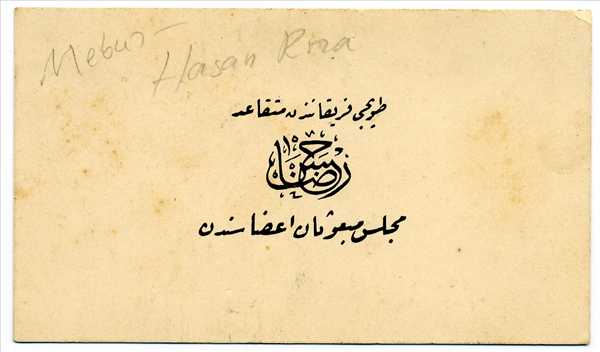 Mebus - Hasan Rıza
طوپجی فریقانندن متقاعد
حسن رضا
مجلس مبعوثان اعضاسندن